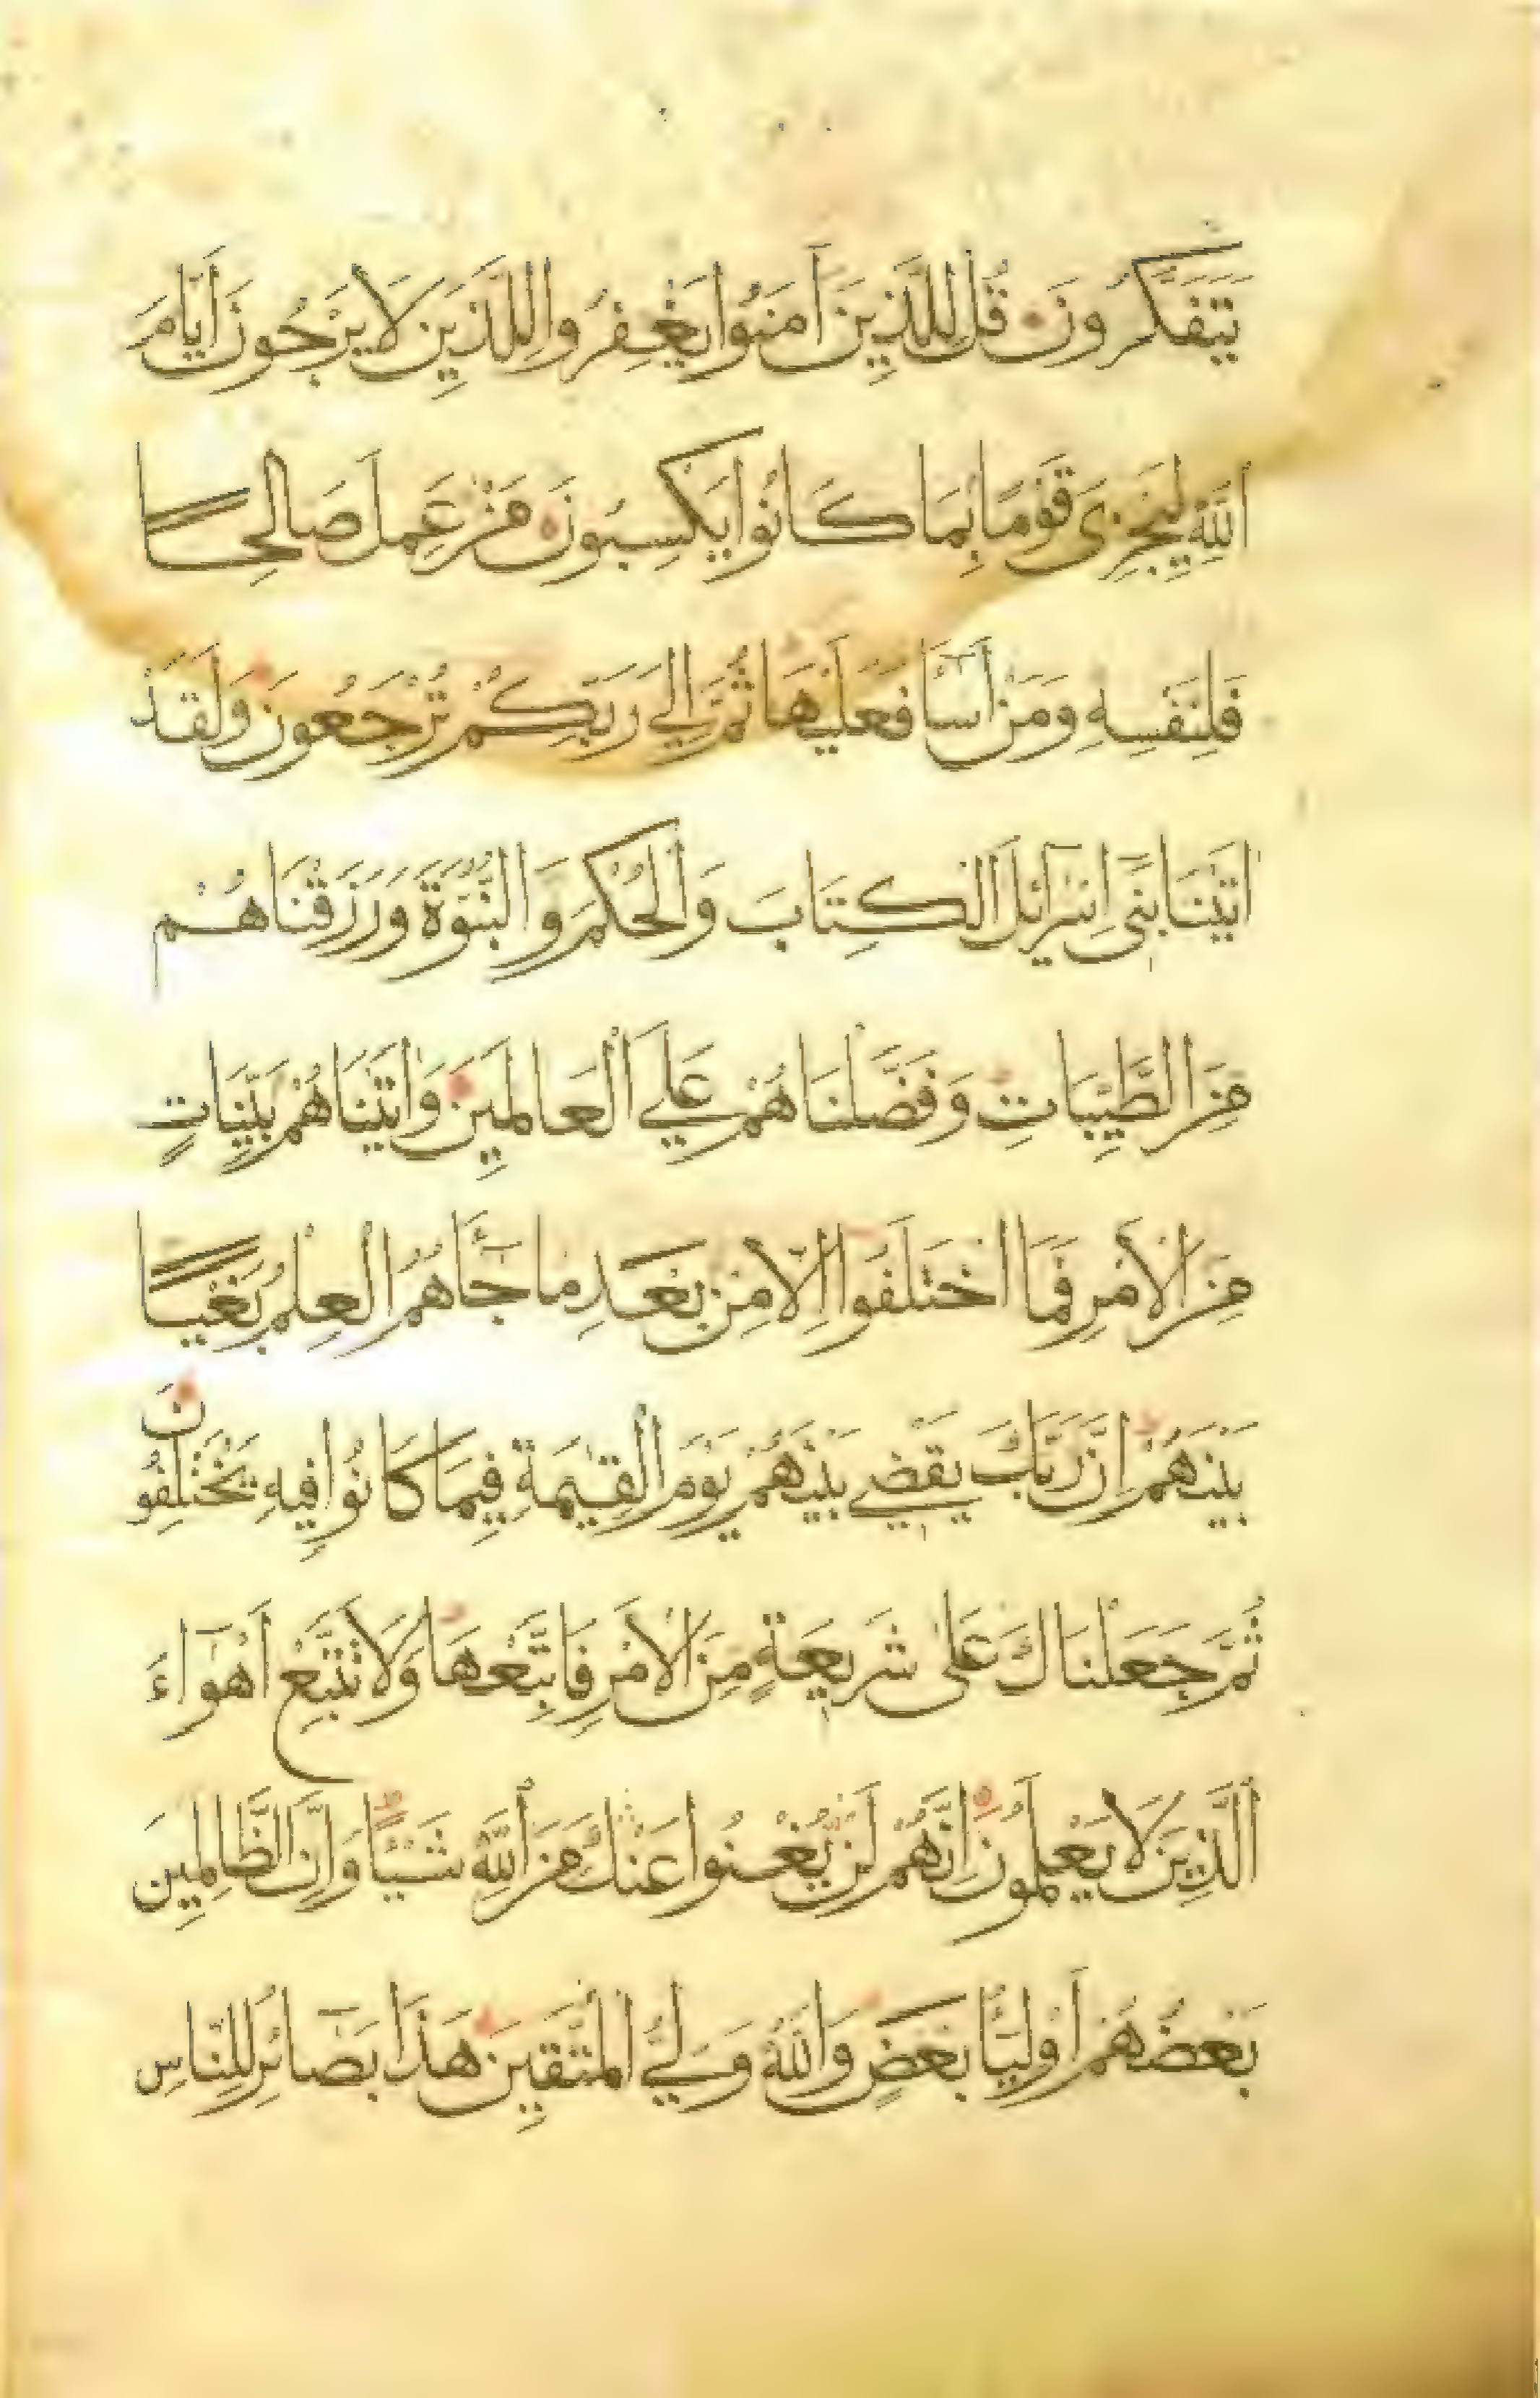 يَتَفَكَّرُونَ قُل لِّلَّذِينَ آمَنُوا يَغْفِرُوا لِلَّذِينَ لَا يَرْجُونَ أَيَّامَ
اللَّهِ لِيَجْزِيَ قَوْمًا بِمَا كَانُوا يَكْسِبُونَ مَنْ عَمِلَ صَالِحًا
فَلِنَفْسِهِ وَمَنْ أَسَاءَ فَعَلَيْهَا ثُمَّ إِلَى رَبِّكُمْ تُرْجَعُونَ وَلَقَدْ
اتَيْنَا بَنِي إِسْرَائِلَ الْكِتَابَ وَالْحُكْمَ وَالنُّبُوَّةَ وَرَزَقْنَاهُم
مِنَ الطَّيِّبَاتِ وَفَضَّلْنَاهُمْ عَلَى الْعَالَمِينَ وَاتَيْنَاهُمْ بَيِّنَاتٍ
مِنَ الْأَمْرِ فَمَا اخْتَلَفُوا إِلَّا مِنْ بَعْدِ مَا جَاءَهُمُ الْعِلْمُ بَغْيًا
بَيْنَهُمْ إِنَّ رَبَّكَ يَقْضِي بَيْنَهُمْ يَوْمَ الْقِيٰمَةِ فِيمَا كَانُوا فِيهِ يَخْتَلِفُونَ
ثُمَّ جَعَلْنَاكَ عَلَى شَرِيعَةٍ مِنَ الْأَمْرِ فَاتَّبِعْهَا وَلَا تَتَّبِعْ أَهْوَاءَ
الَّذِينَ لَا يَعْلَمُونَ إِنَّهُمْ لَنْ يُغْنُوا عَنْكَ مِنَ اللَّهِ شَيْئًا وَإِنَّ الظَّالِمِينَ
بَعْضُهُمْ أَوْلِيَاءُ بَعْضٍ وَاللَّهُ وَلِيُّ الْمُتَّقِينَ هَذَا بَصَائِرُ لِلنَّاسِ